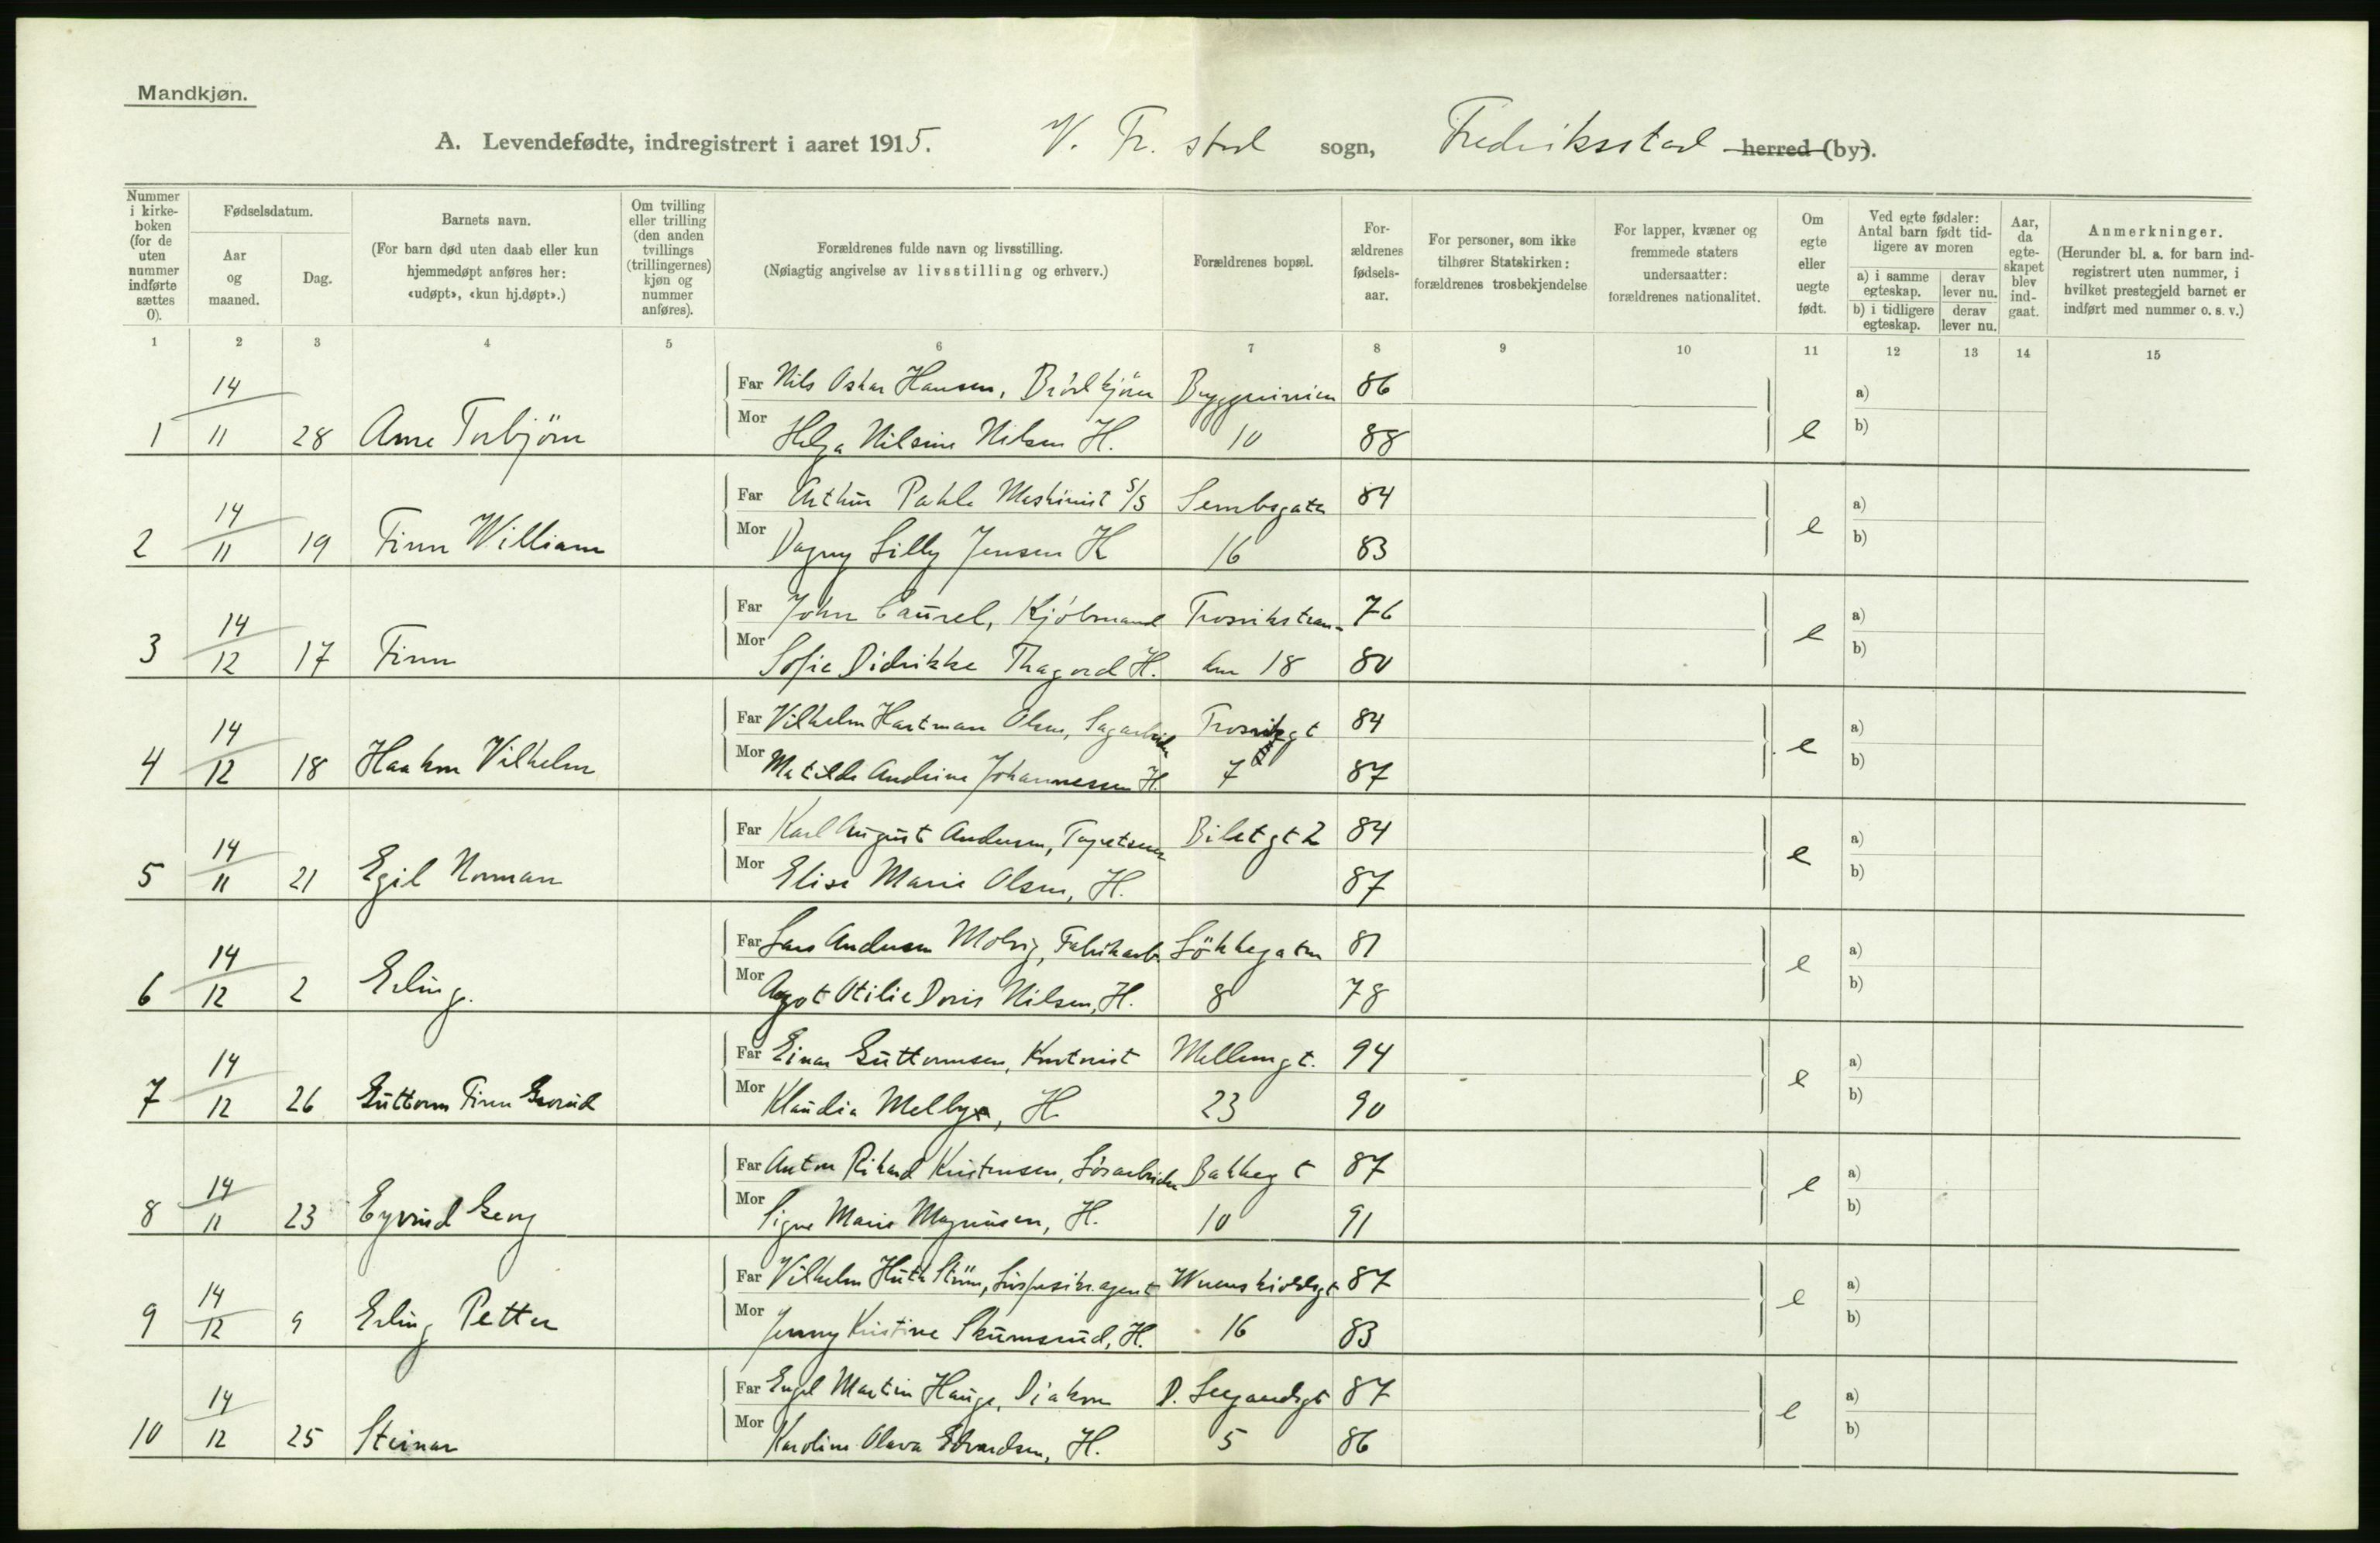 Mandkjøn.
A. Levendefødte, indregistrert i aaret 1915. V. Fr. stad sogn, Fredriksstad herred (by).
Nummer i kirke-boken (for de uten nummer indførte sættes 0).
Fødselsdatum.
Aar og maaned.
Dag.
Barnets navn.
(For barn død uten daab eller kun hjemmedøpt anføres her: «udøpt», «kun hj.døpt».)
Om tvilling eller trilling (den anden tvillings (trillingernes) kjøn og nummer anføres).
Forældrenes fulde navn og livsstilling.
(Nøiagtig angivelse av livsstilling og erhverv.)
Forældrenes bopæl.
For-ældrenes fødsels-aar.
For personer, som ikke tilhører Statskirken: forældrenes trosbekjendelse
For lapper, kvæner og fremmede staters undersaatter: forældrenes nationalitet.
Om egte eller uegte født.
Ved egte fødsler: Antal barn født tid-ligere av moren
a) i samme egteskap.
derav lever nu.
b) i tidligere egteskap.
derav lever nu.
Aar, da egte-skapet blev ind-gaat.
Anmerkninger.
(Herunder bl. a. for barn ind-registrert uten nummer, i hvilket prestegjeld barnet er indført med nummer o. s. v.)
1 2 3 4 5 6 7 8 9 10 11 12 13 14 15
14 Far Nils Oskar Hansen, 86 a)
1 11 28 Arne Torbjörn Mor Helga Nilsine Nilsen H. 10 88 e b)
14 Far Arthur Pahle Maskinist S/S Lembsgaten 84 a)
2 11 19 Finn William Mor Dagny Lilly Jensen H 16 83 e b)
14 Far John Caurel, Kjöbmand Trosvikstran- 76 a)
3 12 17 Finn Mor Sofie Didrikke H. den 18 80 e b)
14 Far Vilhelm Hartman Olsen, Sagarbeider Trosvikgt 84 a)
4 12 18 Haakon Vilhelm Mor Matilde Andrine Johannessen H. 7 87 e b)
14 Far Karl August Andersen, Tapetserer Biletgt 2 84 a)
5 11 21 Egil Norman Mor Elise Marie Olsen, H. 87 e b)
14 Far Lars Andersen Molvig, Fabrikarb. Lökkegaten 81 a)
6 12 2 Erling. Mor Agot Otilie Doris Nilsen, H. 8 78 e b)
14 Far Einar Guttormsen, Kontorist Mellemgt. 94 a)
7 12 26 Guttorm Finn Mor Klaudia Mellbye, H. 23 90 e b)
14 Far Anton Rikard Kristensen, Lösarbeider Bakkegt 87 a)
8 11 23 Eyvind Georg Mor Signe Marie Magnusen, H. 10 91 e b)
14 Far Vilhelm Huth agent 87 a)
9 12 9 Erling Petter Mor Jenny Kristine Skumsrud, H. 16 83 e b)
14 Far Engel Martin Hauge, Diakon 87 a)
10 12 25 Steinar Mor Karoline Olava Edvardsen, H. 5 86 e b)